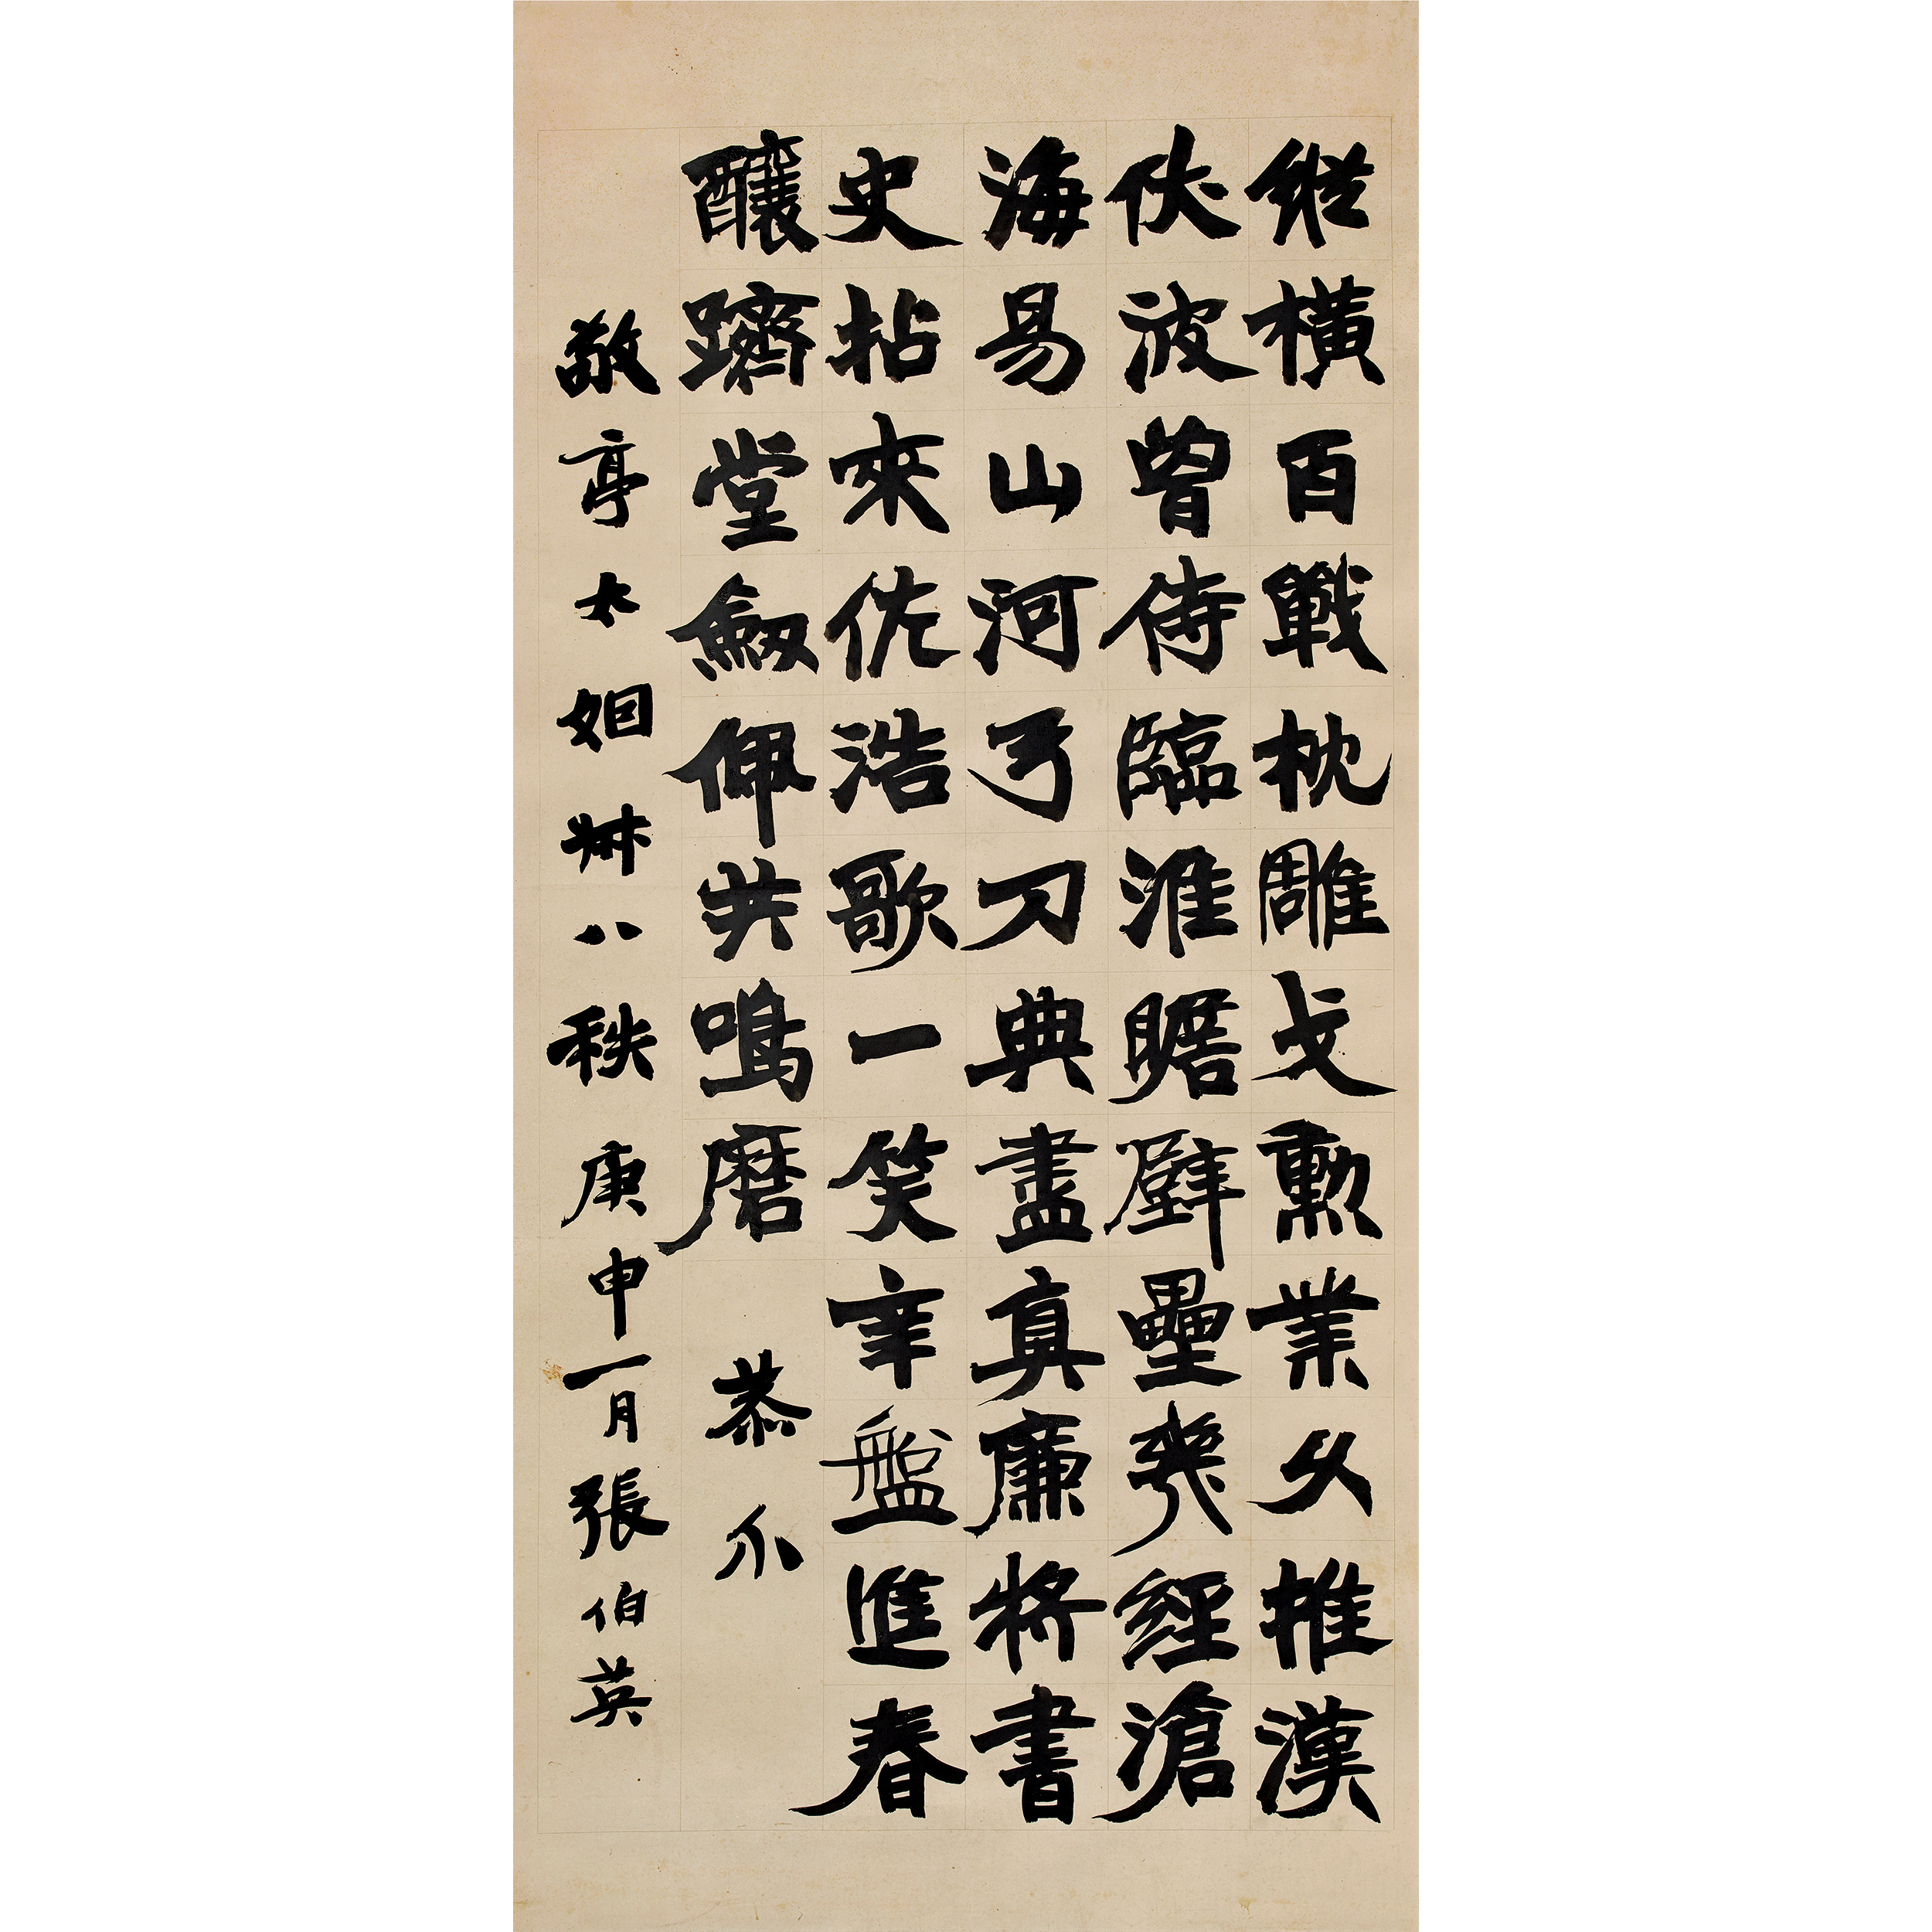 縱橫百戰枕雕戈勲業久推漢
伏波曾侍臨淮瞻壁壘幾經滄
海易山河弓刀典盡真廉將書
史拈來佐浩歌一笑辛盤進春
釀躋堂劔佩共鳴磨 恭介
敬亭大姻叔八秩庚申一月張伯英